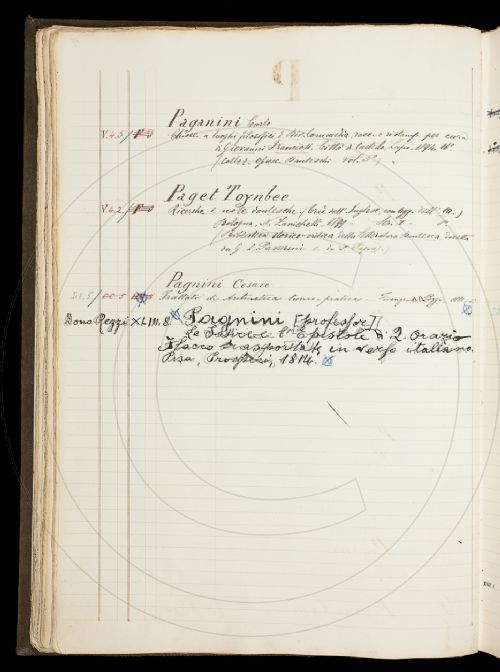 P
Paganini Carlo
V.4.5 / F
Chiose a luoghi filosofici d. Div. Commedia, racc. e ristamp. per cura
di Giovanni Franciosi. Città di Castello, Lapi, 1894. 16°
(Collez. Opusc. Danteschi vol. 
Paget Toynbee
V.4.2 / F
Ricerche e note dantesche (Trad. dall' Inglese, con agg. dell' A.)
Bologna, N. Zanichelli, 1899
(Biblioteca storico-critica della letteratura dantesca, diretta
da G. L. Passerini e da P. Papa).
Pagnini Cesare
Trattato di Aritmetica teorico-pratica. Firenze
Dono Pezzi XLIII. 8. Pagnini [professore]
Le Satire e l' Epistole di Q. Orazio
Flacco trasportate in versi italiani.
Pisa, Prosperi, 1814.